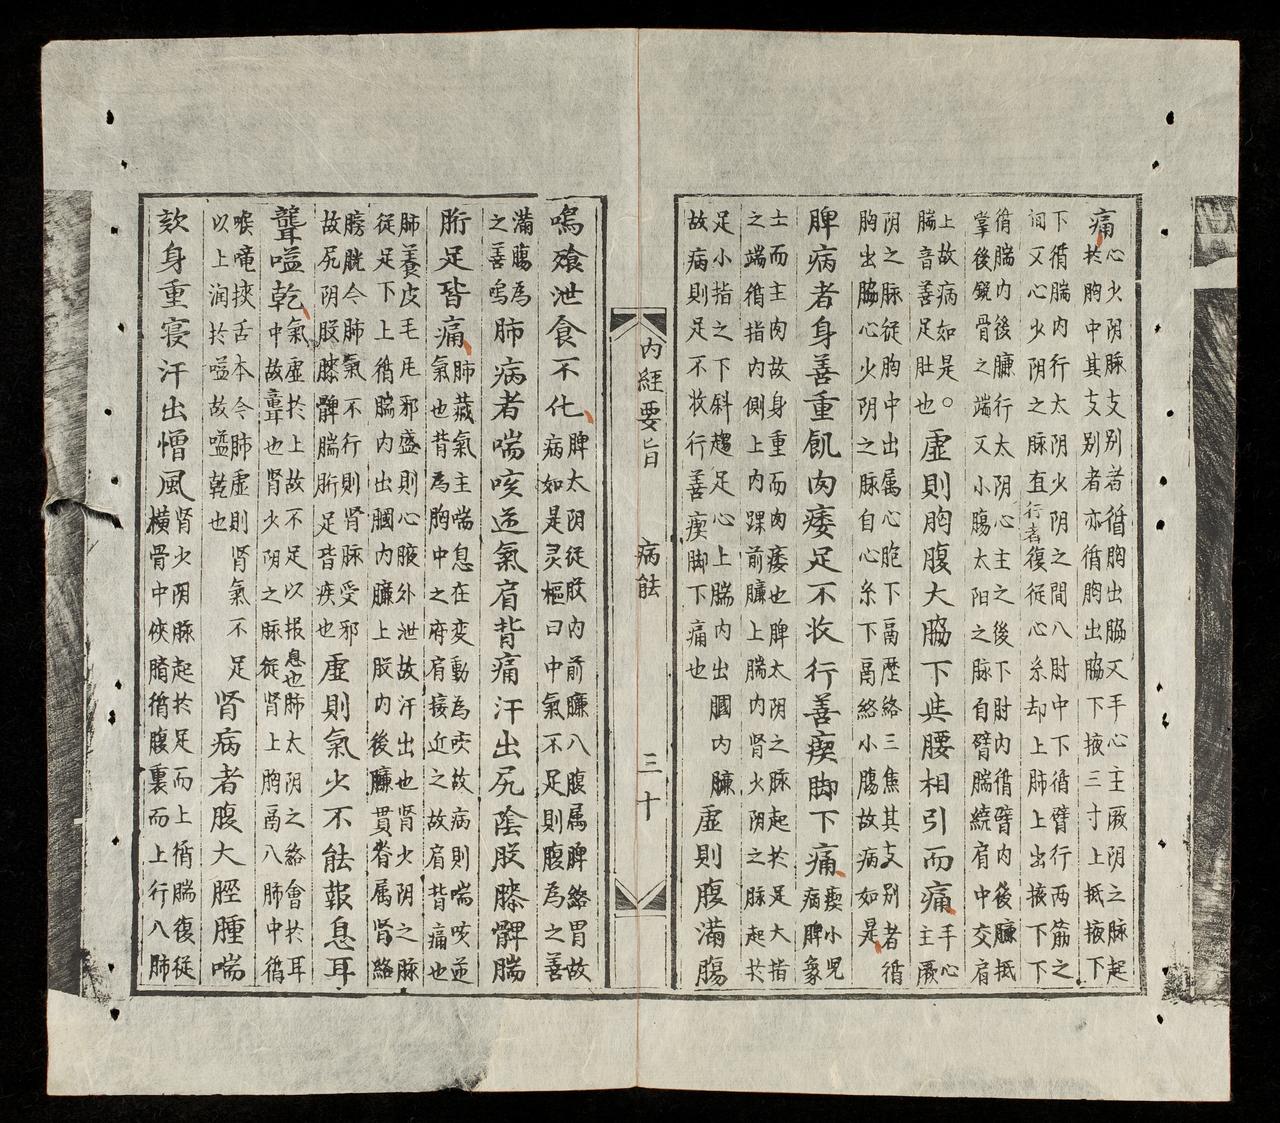 痛心少阴脉支别者循胸出脇又手心主厥阴之脉起
於胸中其支别者亦循胸出脇下掖三寸上抵掖下
下循臑内行太阴少阴之間入肘中下循臂行两筋之
间又心少阴之脉直行者復從心系却上肺上出掖下下
循臑内後臁行太阴心主之後下肘内循臂内後臁抵
掌後銳骨之端又小腸太阳之脉自臂臑繞肩中交肩
上故病如是○
臑音善足肚也
虛則胸腹大脇下与腰相引而痛手心
主厥
阴之脉從胸中出属心胞下鬲歷絡三焦其支别者循
胸出脇心少阴之脉自心系下鬲絡小腸故病如是
脾病者身善重飢肉痿足不收行善瘈脚下痛瘈小児
病脾象
土而主肉故身重而肉痿也脾太阴之脉起於足大指
之端循指内側上内踝前臁上腨内肾少阴之脉起於
足小指之下斜趨足心上腨内出膕内臁
故病則足不收行善瘈脚下痛也
虛則腹滿膓
内經要旨 病能 三十
嗚飱泄食不化脾太阴從股内前臁入腹属脾絡胃故
病如是灵樞曰中氣不足則腹為之善
滿膓為
之善嗚
肺病者喘咳逆氣肩背痛汗出尻陰股膝髀腨
胻足皆痛肺藏氣主喘息在变動為咳故病則喘咳逆
氣也背為胸中之府肩接近之故肩背痛也
肺養皮毛尼邪盛則心腋外泄故汗出也肾少阴之脉
從足下上循腨内出膕内臁上股内後臁貫脊属肾絡
膀胱今肺氣不行則肾脉受邪
故尻阴股膝髀腨胻足皆疾也
虛則氣少不能報息耳
聾嗌乾氣虛於上故不足以报息也肺太阴之絡會於耳
中故聾也肾少阴之脉從肾上胸鬲入肺中循
喉嚨挾舌本今肺虛則肾氣不足
以上润於嗌故嗌乾也
肾病者腹大脛腫喘
欬身重寝汗出憎風肾少阴脉起於足而上循腨復従
横骨中侠臍循腹裏而上行入肺